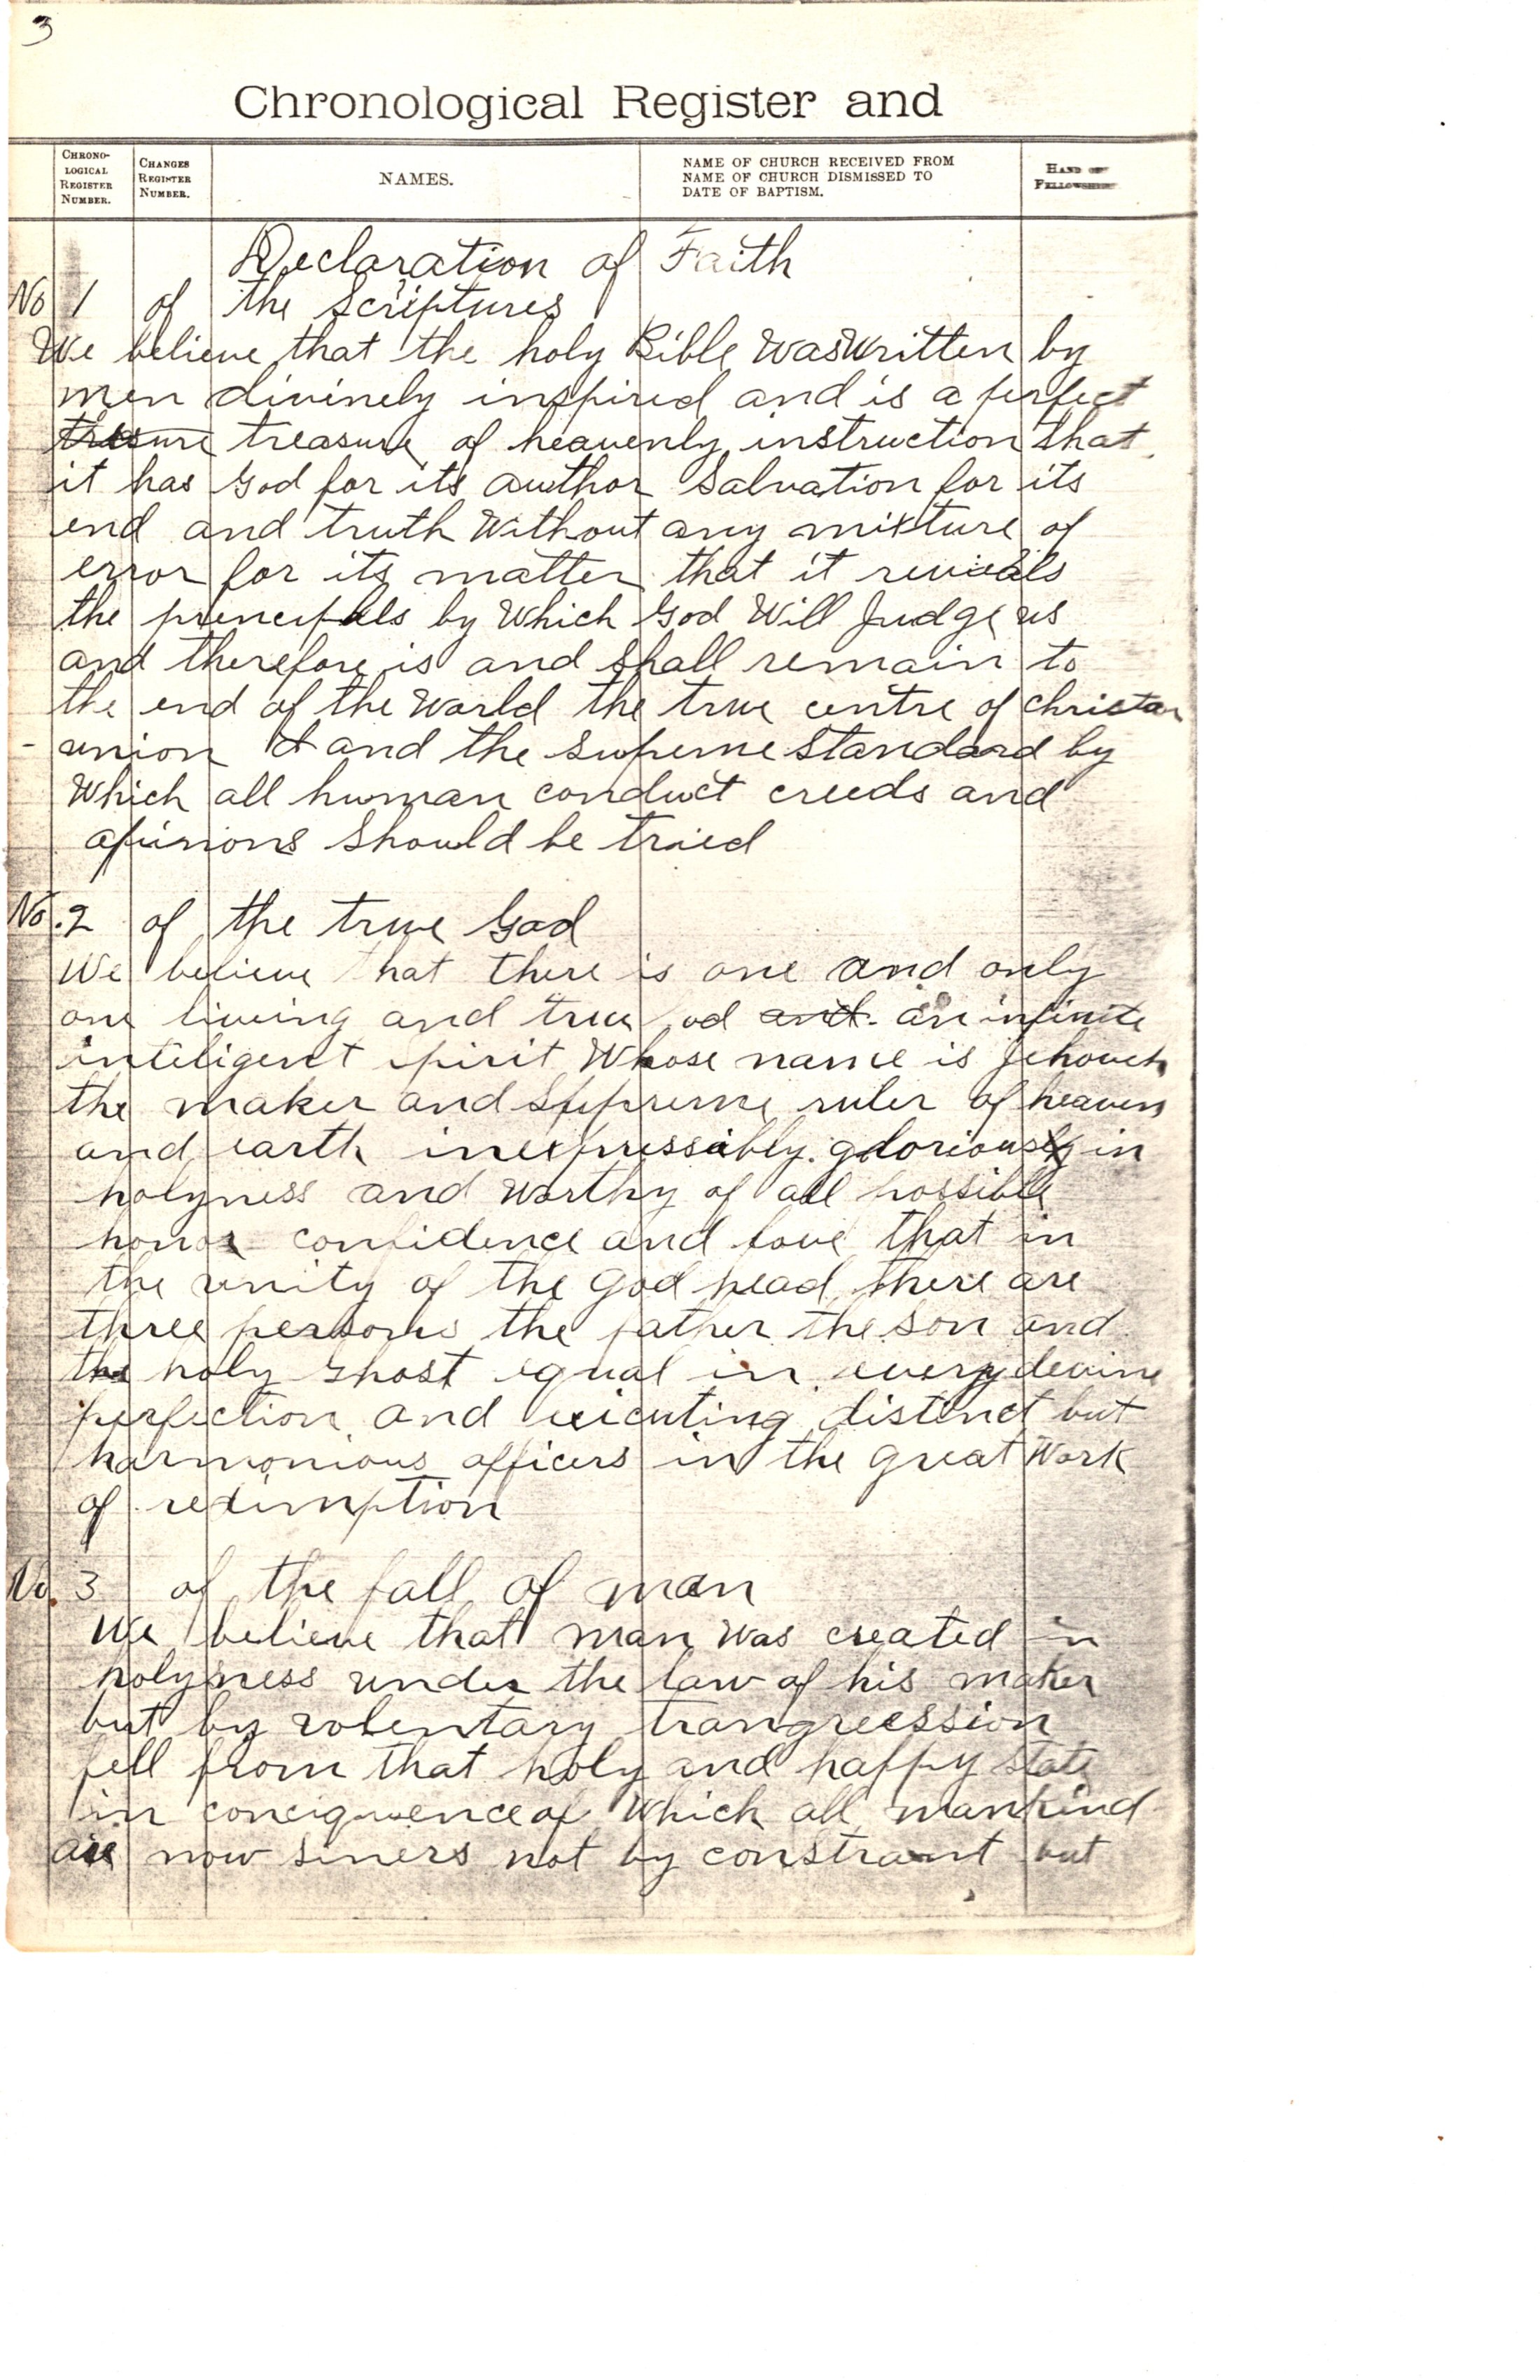 3
Chronological Register and
CHRONO-
LOGICAL
REGISTER
NUMBER.
CHANGES
REGISTER
NUMBER.
NAMES.
NAME OF CHURCH RECEIVED FROM
NAME OF CHURCH DISMISSED TO
DATE OF BAPTISM.
HAND OF
FELLOWSHIP
Declaration of Faith
No 1 of the Scriptures
We believe that the holy Bible Was Written by
men divinely inspired and is a perfect
tresure treasure of heavenly instruction that
it has God for its author Salvation for its
end and truth Without any mixture of
error for its matter that it reveals
the principals by Which God Will Judge us
and therefore is and Shall remain to
the end of the World the true centre of christan
union & and the supreme Standard by
Which all human conduct creeds and
opinions Should be tried
No. 2 of the true God
We believe that there is one and only
one living and true God and an infinite
inteligent spirit Whose name is Jehovah
the maker and Supreme ruler of heaven
and earth inexpressibly gloriously in
holyness and Worthy of all possible
honor confidence and love that in
the unity of the God head there are
three persons the father the son and
the holy Ghost equal in every devine
perfection and exicuting distinct but
harmonious officers in the great Work
of redemption
No. 3 of the fall of man
We believe that man Was created in
holyness under the law of his maker
but by volentary trangreession
fell from that holy and happy state
in conciquence of Which all mankind
are now siners not by constraint but